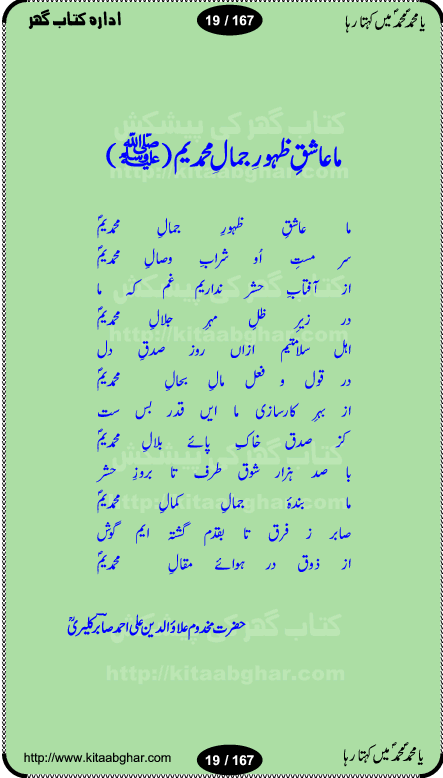 یا محمدؐ محمدؐ میں کہتا رہا
19 / 167
ادارہ کتاب گھر
کتاب گھر کی پیشکش
ما عاشقِ ظہورِ جمالِ محمدیم (ﷺ)
http://kitaabghar.com
ما عاشقِ ظہورِ جمالِ محمدیمؐ
سر مستِ اُو شرابِ وصالِ محمدیمؐ
از آفتابِ حشر نداریم غم کہ ما
کتاب گھر کی پیشکش
در زیرِ ظلِ مہرِ جلالِ محمدیمؐ
http://kitaabghar.com
اہل سلامتیم ازاں روز صدقِ دل
در قول و فعل مالِ بحالِ محمدیمؐ
از بہرِ کارسازی ما ایں قدر بس ست
کز صدق خاکِ پائے بلالِ محمدیمؐ
کتاب گھر کی پیشکش
با صد ہزار شوق طرف تا بروزِ حشر
ما بندۂ جمالِ کمالِ محمدیمؐ
http://kitaabghar.com
صابر ز فرق تا بقدم گشتہ ایم گوش
از ذوق در ہوائے مقالِ محمدیمؐ
کتاب گھر کی پیشکش
حضرت مخدوم علاؤالدین علی احمد صابر کلیریؒ
http://kitaabghar.com
یا محمدؐ محمدؐ میں کہتا رہا
19 / 167
http://www.kitaabghar.com